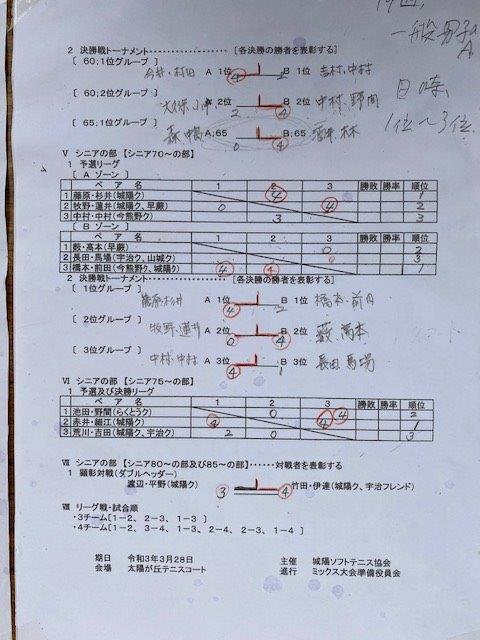 19回
一般男子A
日時、
1位~3位
2 決勝戦トーナメント‥‥‥‥‥‥‥[各決勝の勝者を表彰する]
[ 60;1位グループ ]
今井・村田 A 1位 ④ 2 B 1位 吉村・中村
[ 60;2位グループ ]
A 2位 2 ④ B 2位 中村・野間
[ 65;1位グループ ]
A;65 0 ④ B;65
Ⅴ シニアの部 【シニア70~の部】
1 予選リーグ
[ A ゾーン ]
ペ ア 名 1 2 3 勝敗 勝率 順位
1 藤原・杉井(城陽ク) ④ 1
2 牧野・蓮井(城陽ク、早蕨) 0 ④ 2
3 中村・中村(今熊野ク) 3 3
[ B ゾーン ]
ペ ア 名 1 2 3 勝敗 勝率 順位
1 薮・高本(早蕨) 0 2
2 長田・馬場(宇治ク、山城ク) 3
3 橋本・前田(今熊野ク、城陽ク) ④ ④ 1
2 決勝戦トーナメント‥‥‥‥‥‥‥[各決勝の勝者を表彰する]
[ 1位グループ ]
藤原・杉井 A 1位 ④ 2 B 1位 橋本・前田
[ 2位グループ ]
牧野・蓮井 A 2位 0 ④ B 2位 薮・高本
[ 3位グループ ]
中村・中村 A 3位 ④ 1 B 3位 長田 馬場
Ⅵ シニアの部 【シニア75~の部】
1 予選及び決勝リーグ
ペ ア 名 1 2 3 勝敗 勝率 順位
1 池田・野間(らくとうク) 0 ④ 2
2 赤井・細江(城陽ク) ④ ④ 1
3 荒川・吉田(城陽ク、宇治ク) 2 0 3
Ⅶ シニアの部 【シニア80~の部及び85~の部】‥‥‥対戦者を表彰する
1 顕彰対戦(ダブルヘッダー)
渡辺・平野(城陽ク) ③ ④ 竹田・伊達(城陽ク、宇治フレンド)
Ⅷ リーグ戦・試合順
・3チーム[1-2、2-3、1-3 ]
・4チーム[1-2、3-4、1-3、2-4、2-3、1-4 ]
期日 令和3年3月28日 主催 城陽ソフトテニス協会
会場 太陽が丘テニスコート 進行 ミックス大会準備役員会